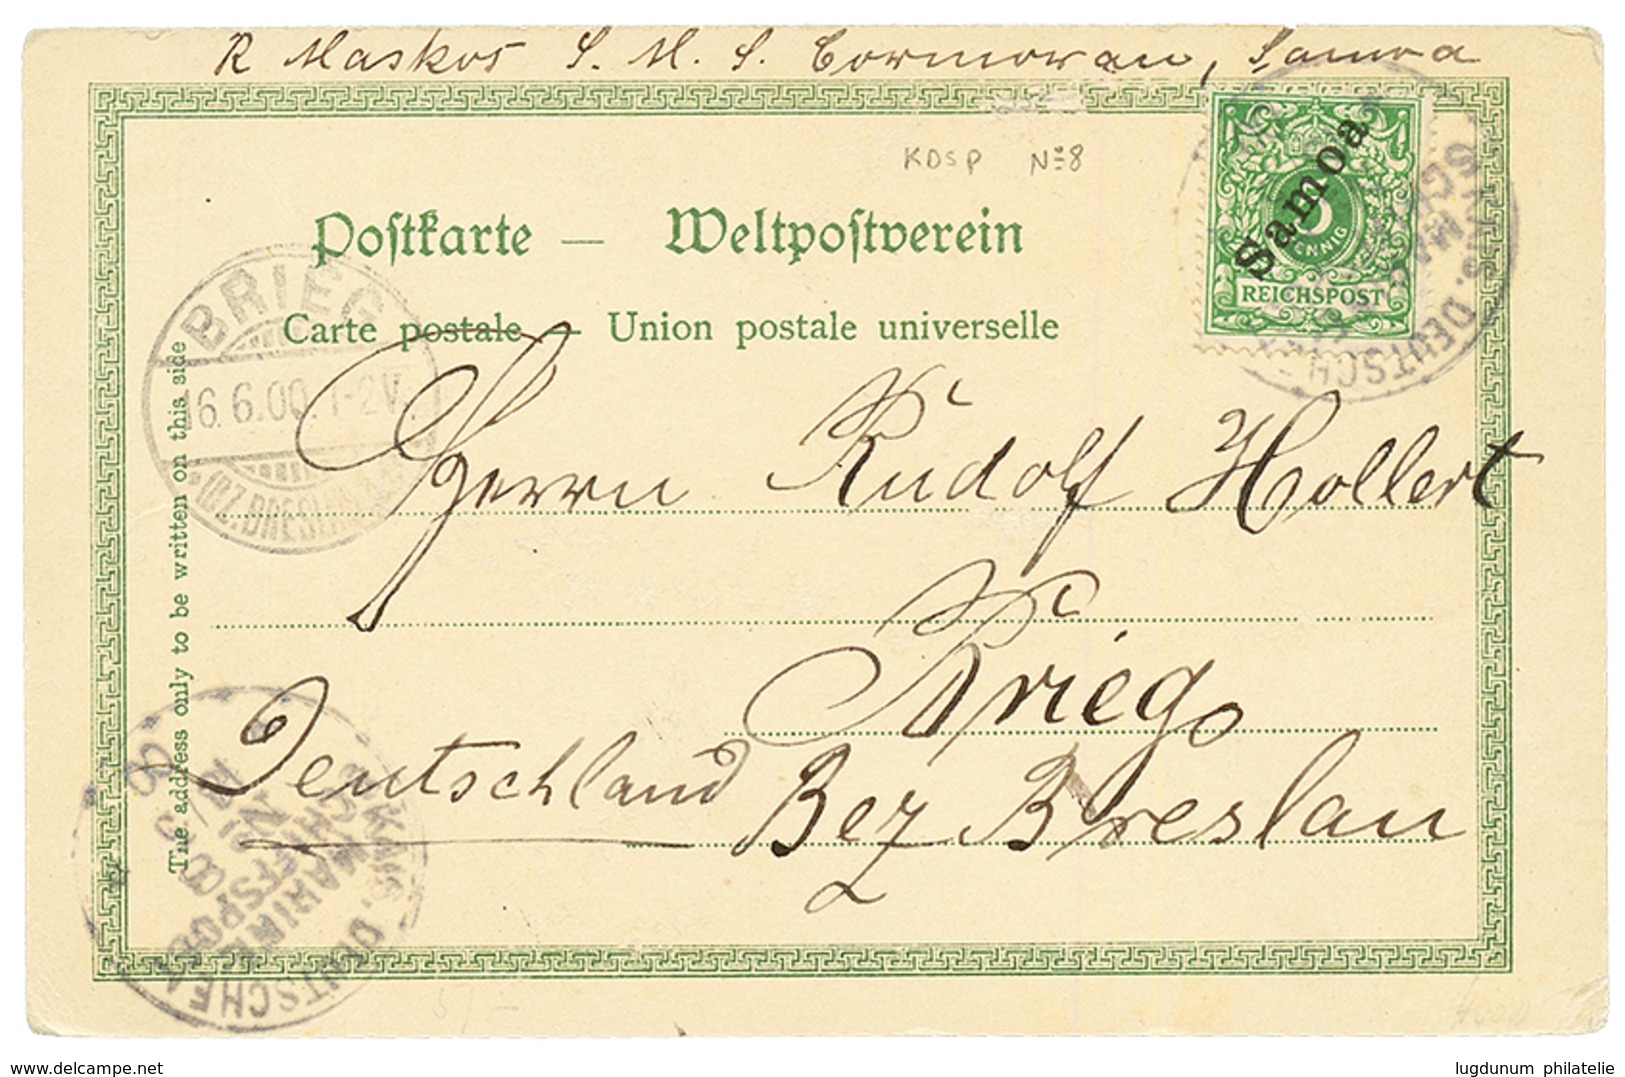 R Maskos S. M. S. Cormoran, Samoa
KDSP No 8
Samoa
5
PFENNIG
REICHSPOST
Postkarte — Weltpostverein
Carte postale — Union postale universelle
BRIEG
16.6.00. 1-2V.
*(BZ. BRESLAU)
The address only to be written on this side
Herrn Rudolf Hollert
Brieg
Deutschland Bez Breslau
KAIS. DEUTSCHE
MARINE-
SCHIFFSPOST
No 8
KAIS. DEUTSCHE
5/-
delcampe.net
lugdunum philatelie